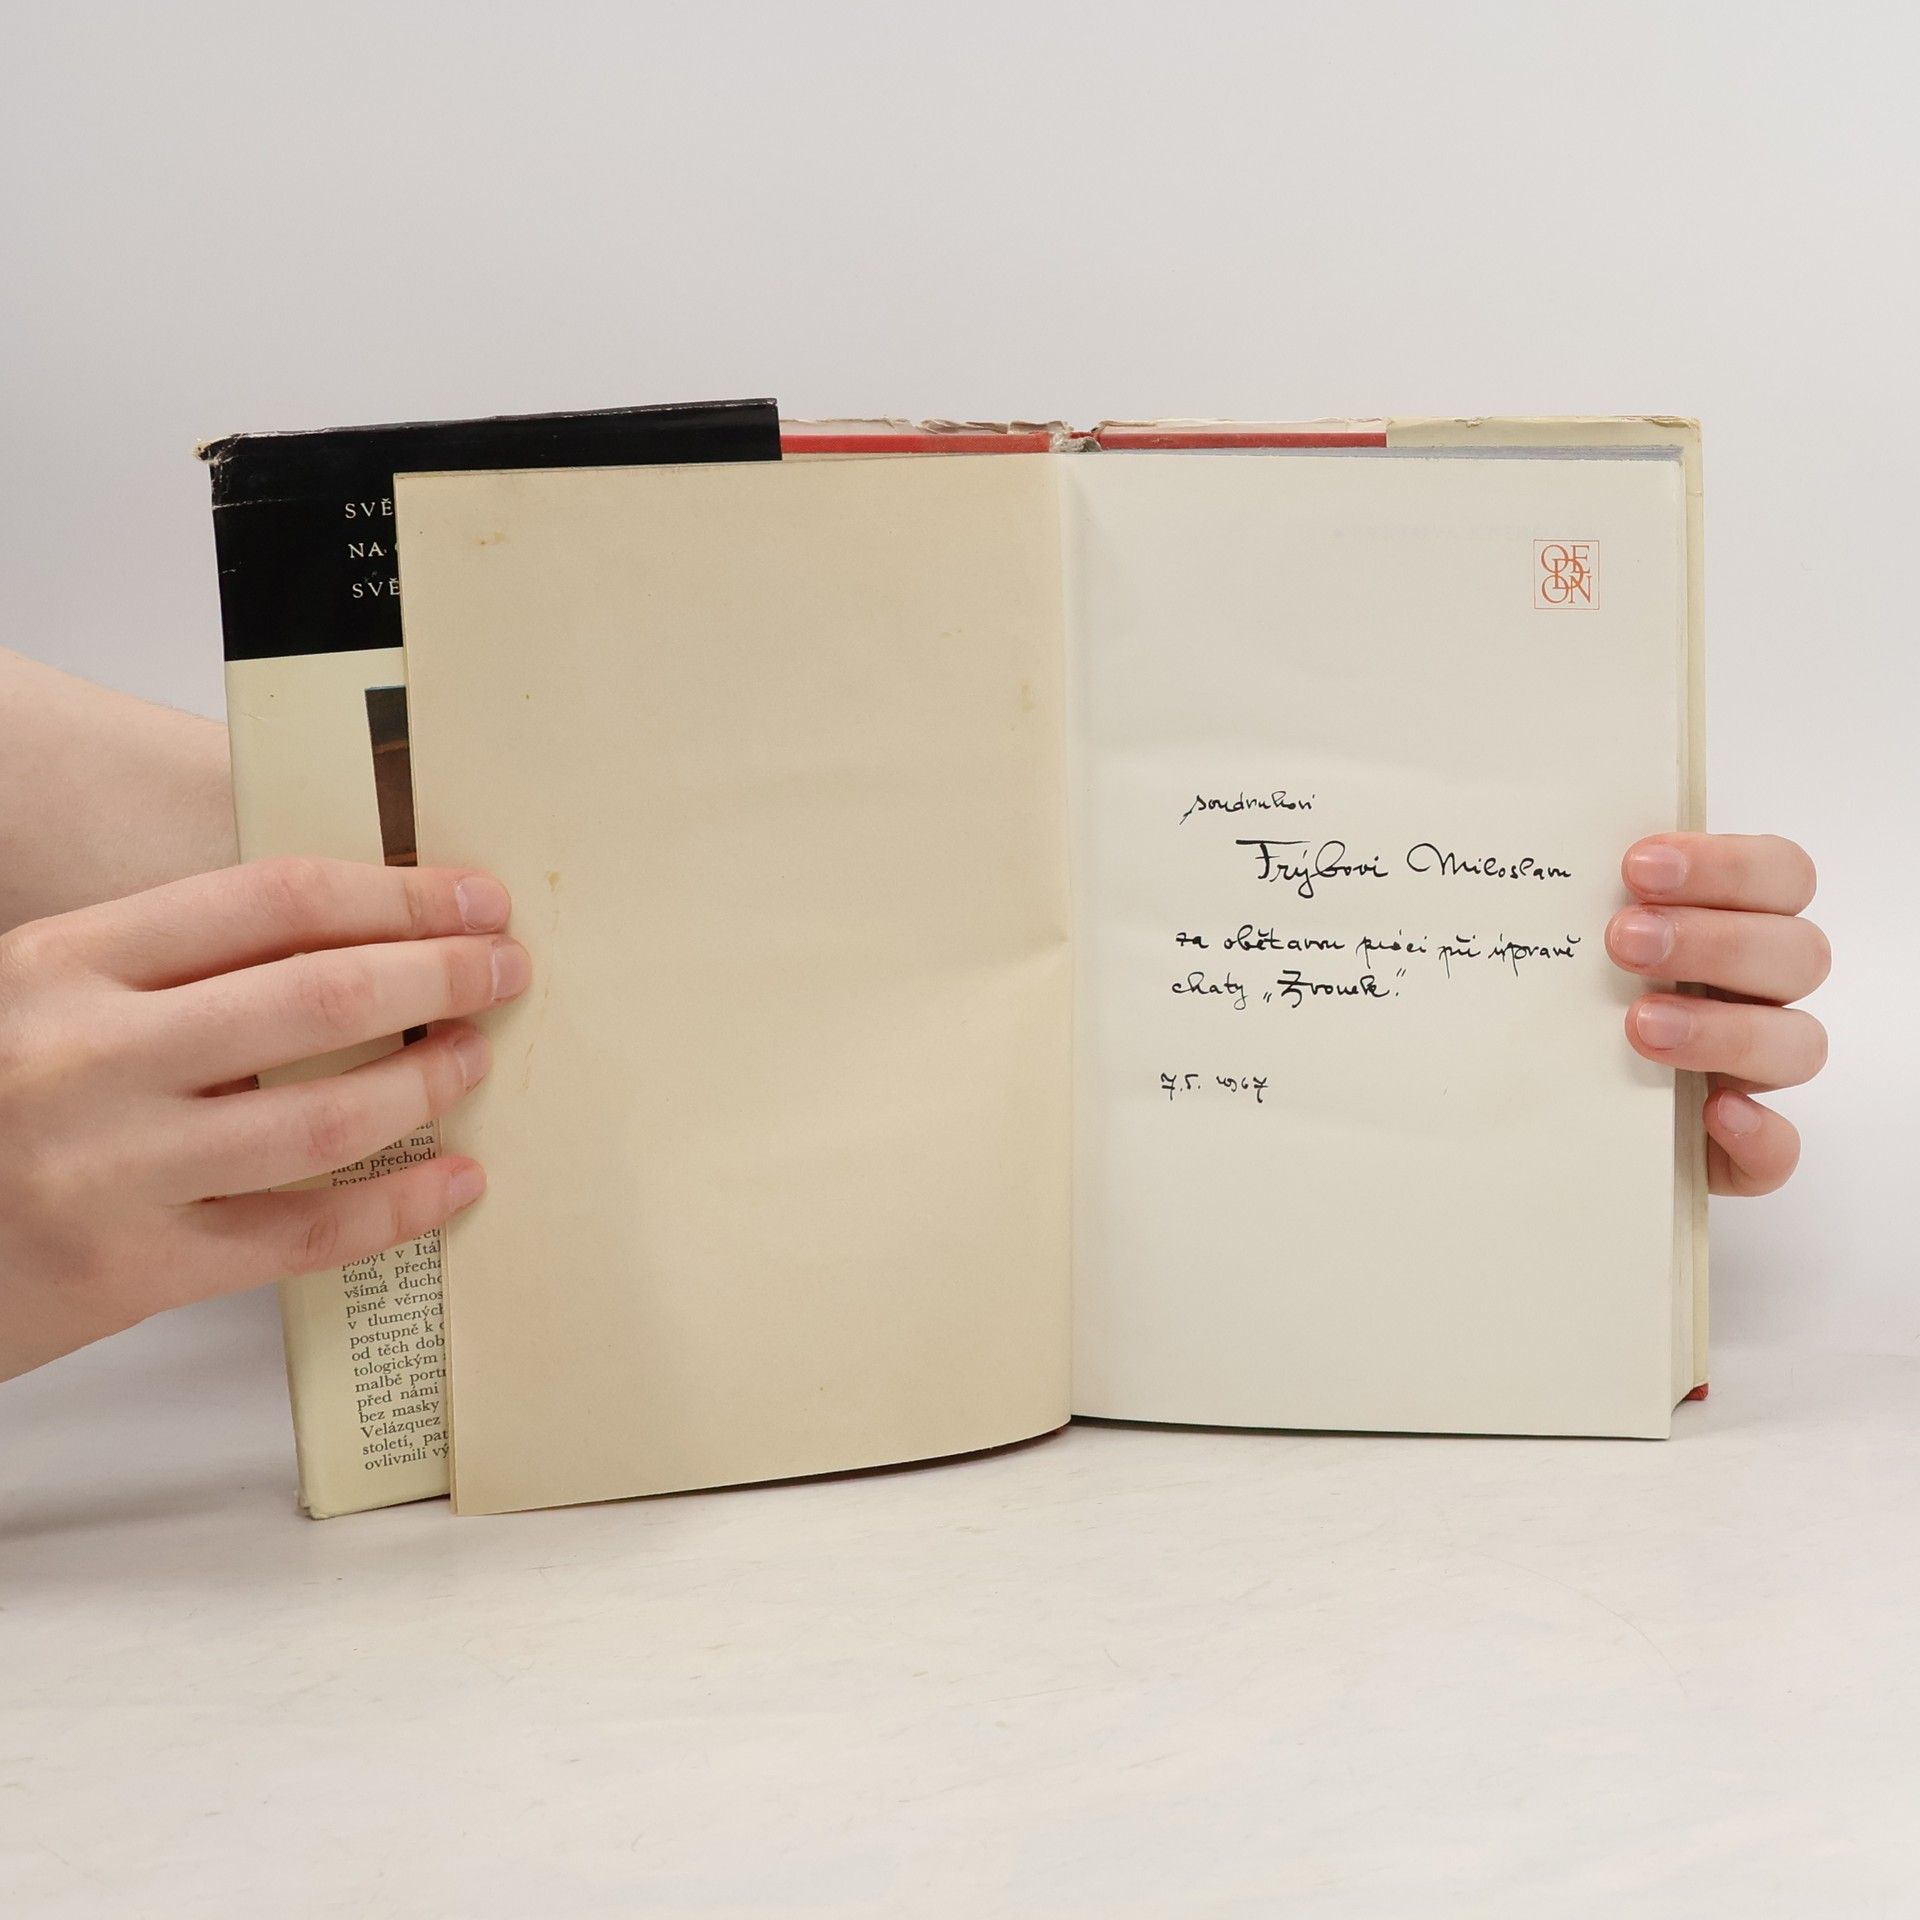 SVĚ
NA
SVĚ
ku ma
jich přechode
španělsk
pobyt v Itál
tónů, přechá
všímá ducho
pisné věrnos
v tlumených
postupně k
od těch dob
tologickým
malbě portr
před námi
bez masky
Velázquez
století, pat
ovlivnili vý
ODEON
soudruhovi
Frýbovi Miloslavu
za obětavou práci při úpravě
chaty „Zvonek."
7.5. 1967